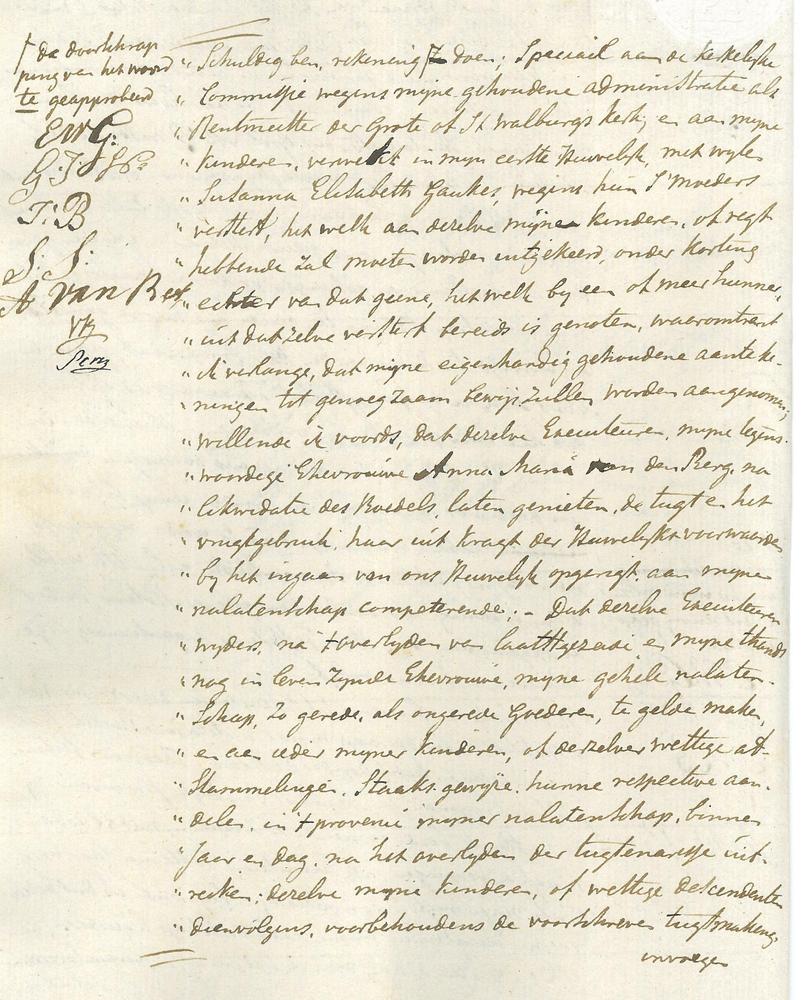 ſ de doorschrap
ping van het woord
te geapprobeerd
EWG:
T:B
S: S:
A van Be
" Schuldig ben, rekening te doen; Speciaal aan de kerkelyke
" Commissie wegens myne gehoudene administratie als
" Rentmeester der Grote of St Walburgs Kerk; en aan myne
" kinderen, verwekt in myn eerste Huwelyk, met wylen
" Susanna Elisabeth Gaukes, wegens hun 's Moeders
" versterf, het welk aan dezelve myne kinderen, of regt
" hebbende zal moeten worden uitgekeerd, onder korting
" echter van dat geene, het welk by een of meer hunner,
" uit dat zelve versterf bereids is genoten, waaromtrent
" ik verlange, dat myne eigenhandig gehoudene aanteke-
" ningen tot genoegzaam bewijs zullen worden aangenomen;
" willende ik voords, dat dezelve Executeuren, myne tegens-
" woordige Ehevrouwe Anna Maria van den Berg, na
" likwidatie des Boedels, laten genieten, de tugt en het
" vrugtgebruik, haar uit kragt der Huwelyksvoorwaarden
" by het ingaan van ons Huwelyk opgeregt, aan myne
" nalatenschap competerende; - Dat dezelve Executeuren
" wyders, na 't overlyden van laatstgezeide, en myne thands
" nog in leven zynde Ehevrouwe, myne gehele nalaten-
" schap, zo gerede, als ongerede Goederen, te gelde maken,
" en aan ieder myner kinderen, of derzelver wettige af-
" stammelingen, Staaks gewyze, hunne respective aan-
" delen, in 't provenu mymer nalatenschap, binnen
" Jaar en dag, na het overlyden der tugtenaresse uit-
" reiken; dezelve myne kinderen, of wettige descendenten
" dienvolgens, voorbehoudens de voorschreven tugtmaking,
invoegen